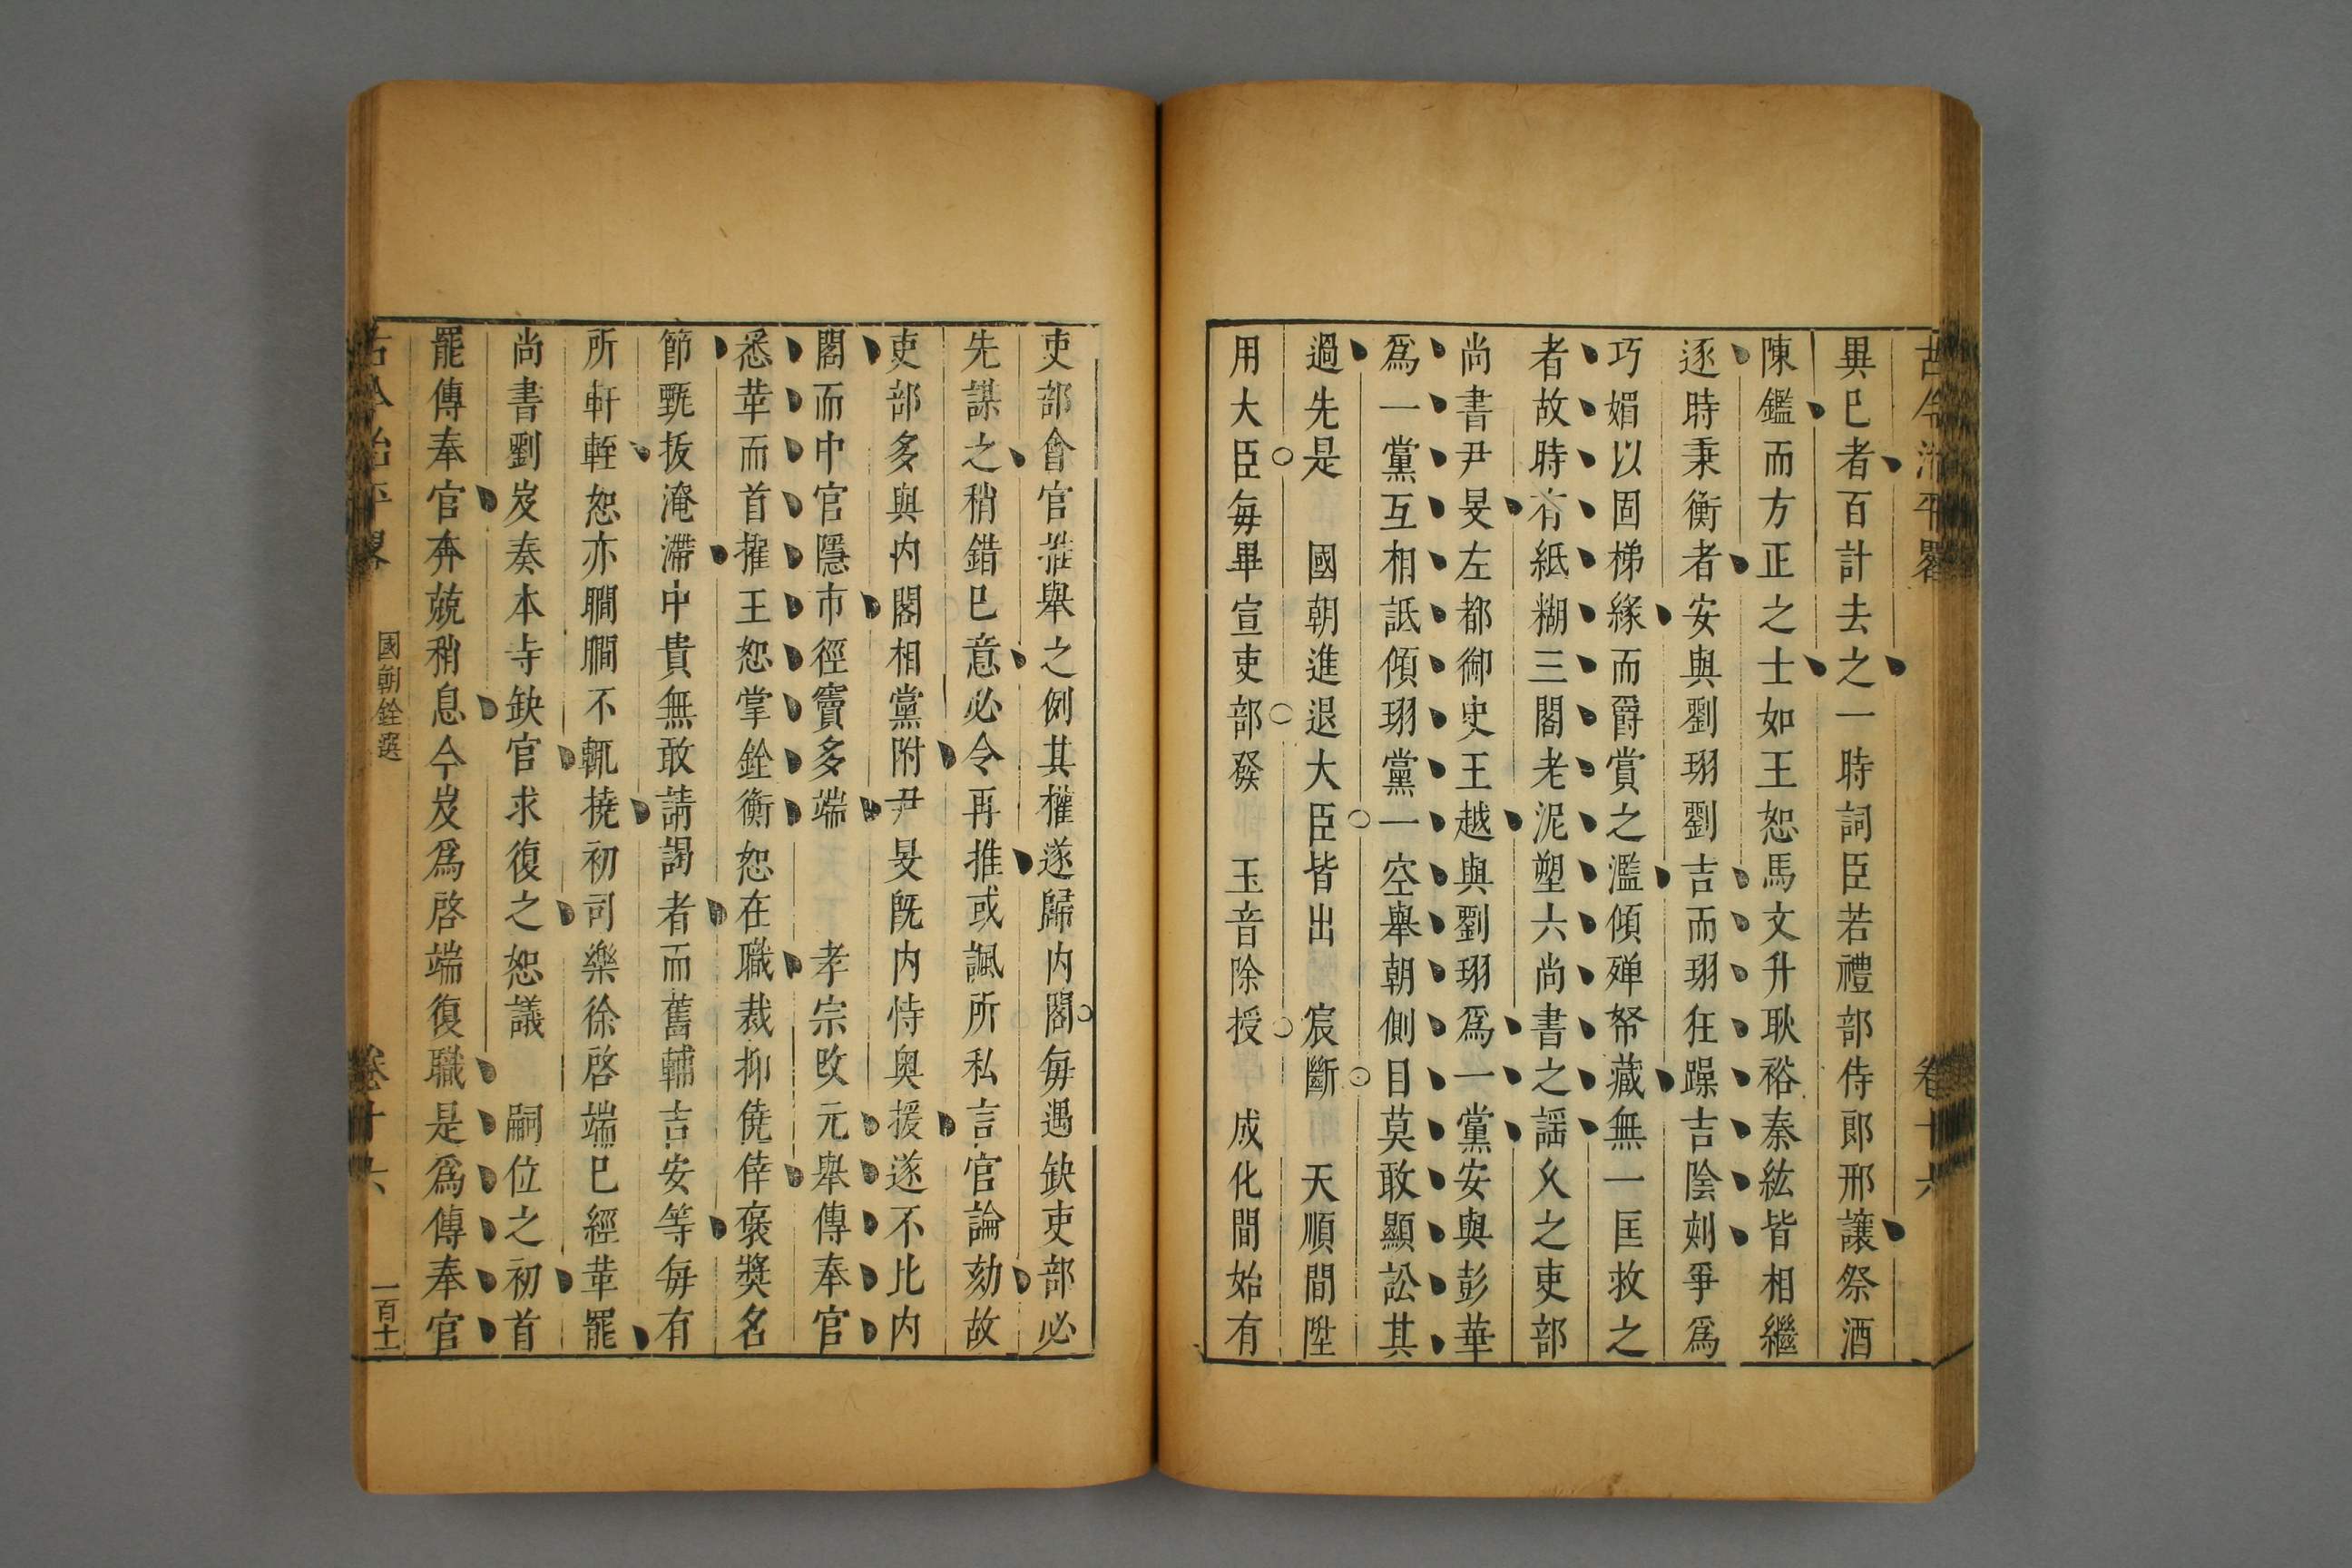 古今治平畧 卷十六
異已者百計去之一時詞臣若禮部侍郎邢讓祭酒
陳鑑而方正之士如王恕馬文升耿裕秦紘皆相繼
逐時秉衡者安與劉珝劉吉而珝狂躁吉陰刻爭爲
巧媚以固梯緣而爵賞之濫傾殫帑藏無一匡救之
者故時有紙糊三閣老泥塑六尚書之謡久之吏部
尚書尹旻左都御史王越與劉珝爲一黨安與彭華
爲一黨互相詆傾珝黨一空舉朝側目莫敢顯訟其
過先是 國朝進退大臣皆出 宸斷 天順間陞
用大臣每畢宣吏部發 玉音除授 成化間始有
吏部會官推舉之例其權遂歸内閣每遇缺吏部必
先謀之稍錯巳意必令再推或諷所私言官論劾故
吏部多與内閣相黨附尹旻既内恃奥援遂不比内
閣而中官隱市徑竇多端 孝宗改元舉傳奉官
悉革而首擢王恕掌銓衡恕在職裁抑僥倖褒獎名
節甄拔淹滯中貴無敢請謁者而舊輔吉安等每有
所軒輊恕亦瞷瞷不輒撓初司樂徐啓端巳經革罷
尚書劉岌奏本寺缺官求復之恕議 嗣位之初首
罷傳奉官奔兢稍息今岌爲啓端復職是爲傳奉官
古今治平畧 國朝銓選 卷十六 一百十一